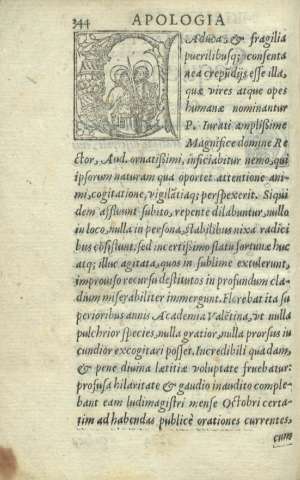 344 APOLOGIA
CAduca, & fragilia
puerilibusq; consenta
nea crepundijs esse illa,
quæ vires atque opes
humanæ nominantur
P. Iurati amplissime
Magnifice domine Re
ctor, Aud. ornatissimi, inficiabitur nemo, qui
ipsorum naturam qua oportet attentione ani-
mi, cogitatione, vigilātiaq; perspexerit. Siqui
dem affluunt subito, repente dilabuntur, nullo
in loco, nulla in persona, stabilibus nixa radici
bus cōsistunt. sed incertissimo flatu fortunæ huc
atq; illuc agitata, quos in sublime extulerunt,
improuiso recursu destitutos in profundum cla-
dium miserabiliter immergunt. Florebat ita su
perioribus annis Academia Valētina, vt nulla
pulchrior species, nulla gratior, nulla prorsus iu
cundior excogitari posset. Incredibili quadam,
& pene diuina lætitiæ voluptate fruebatur:
profusa hilaritate & gaudio inaudito comple-
bant eam ludimagistri mense Octobri certa-
tim ad habendas publicè orationes currentes,
cum